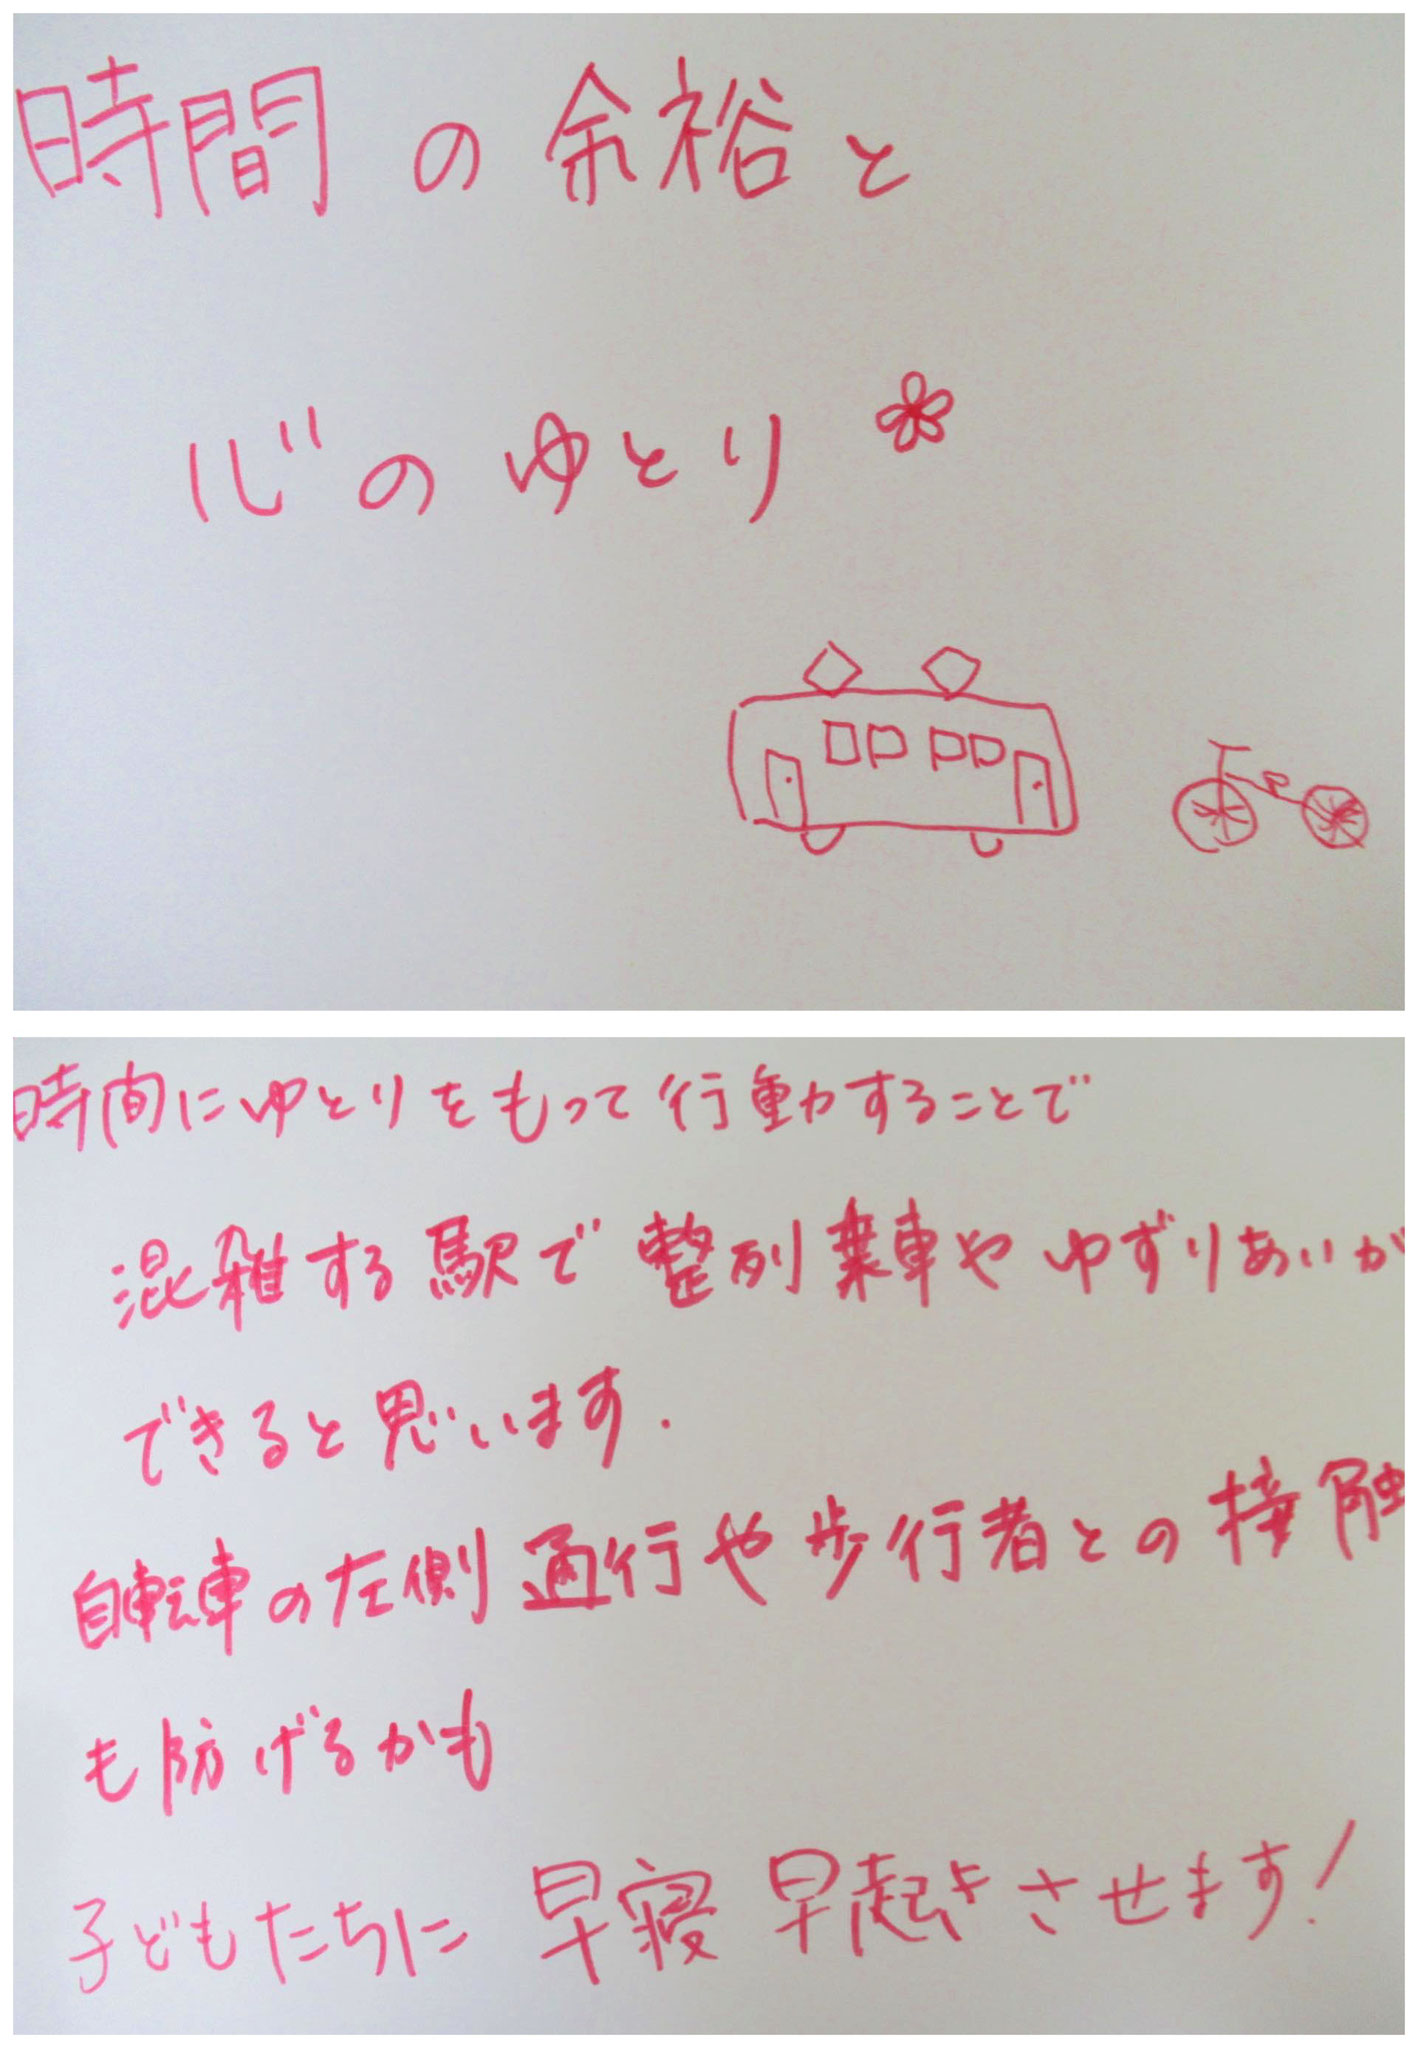 時間の余裕と
心のゆとり
時間にゆとりをもって行動することで
混雑する駅で整列乗車やゆずりあいが
できると思います.
自転車の左側通行や歩行者との接触
も防げるかも
子どもたちに早寝早起きさせます!